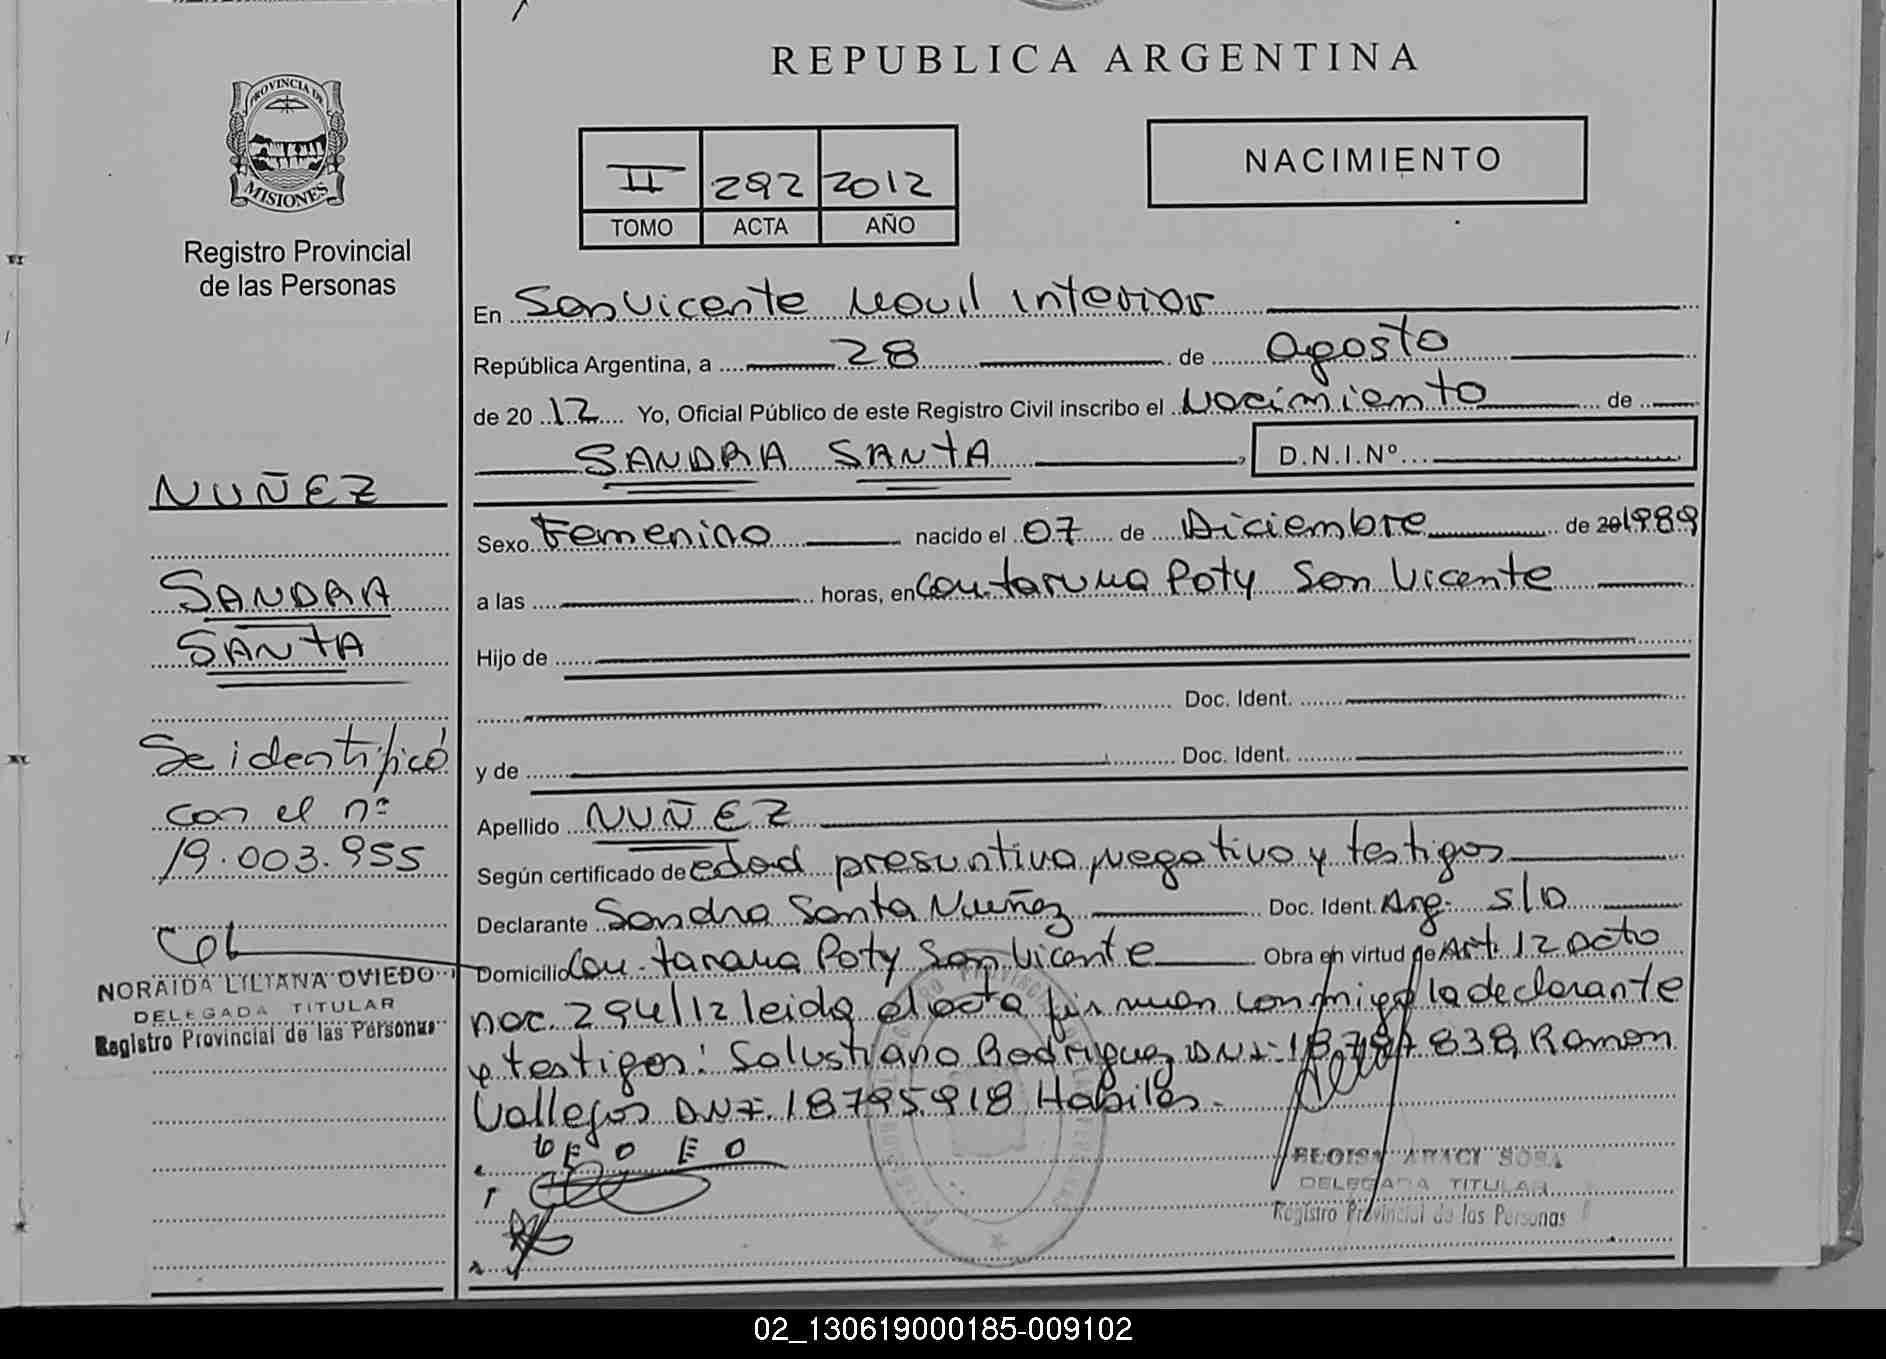 REPUBLICA ARGENTINA
PROVINCIA DE
MISIONES
Registro Provincial
de las Personas
II 292 2012
TOMO ACTA AÑO
NACIMIENTO
En San Vicente Movil Interior
República Argentina, a 28 de agosto
de 20 12 Yo, Oficial Público de este Registro Civil inscribo el Nacimiento de
SANDRA SANTA, D.N.I.Nº
Sexo Femenino nacido el 07 de Diciembre de 201989
a las horas, en Cou. taruma Poty San Vicente
Hijo de
Doc. Ident.
y de Doc. Ident.
Apellido NUÑEZ
Según certificado de edad presuntiva, negativo y testigos
Declarante Sandra Santa Nuñez Doc. Ident. Arg. S/D
Domicilio Cou. taruma Poty San Vicente Obra en virtud de Art. 12 Dcto
nac. 294/12 leida el acta firman conmigo la declarante
y testigos: Salustiano Rodriguez DNI. 838, Ramon
Vallejos DNI. 18795918 Habiles.
NUÑEZ
SANDRA
SANTA
Se identificó
con el nº
19.003.955
NORAIDA LILIANA OVIEDO
DELEGADA TITULAR
Registro Provincial de las Personas
ELOISA ARACI SOSA
DELEGADA TITULAR
Registro Provincial de las Personas
02_130619000185-009102